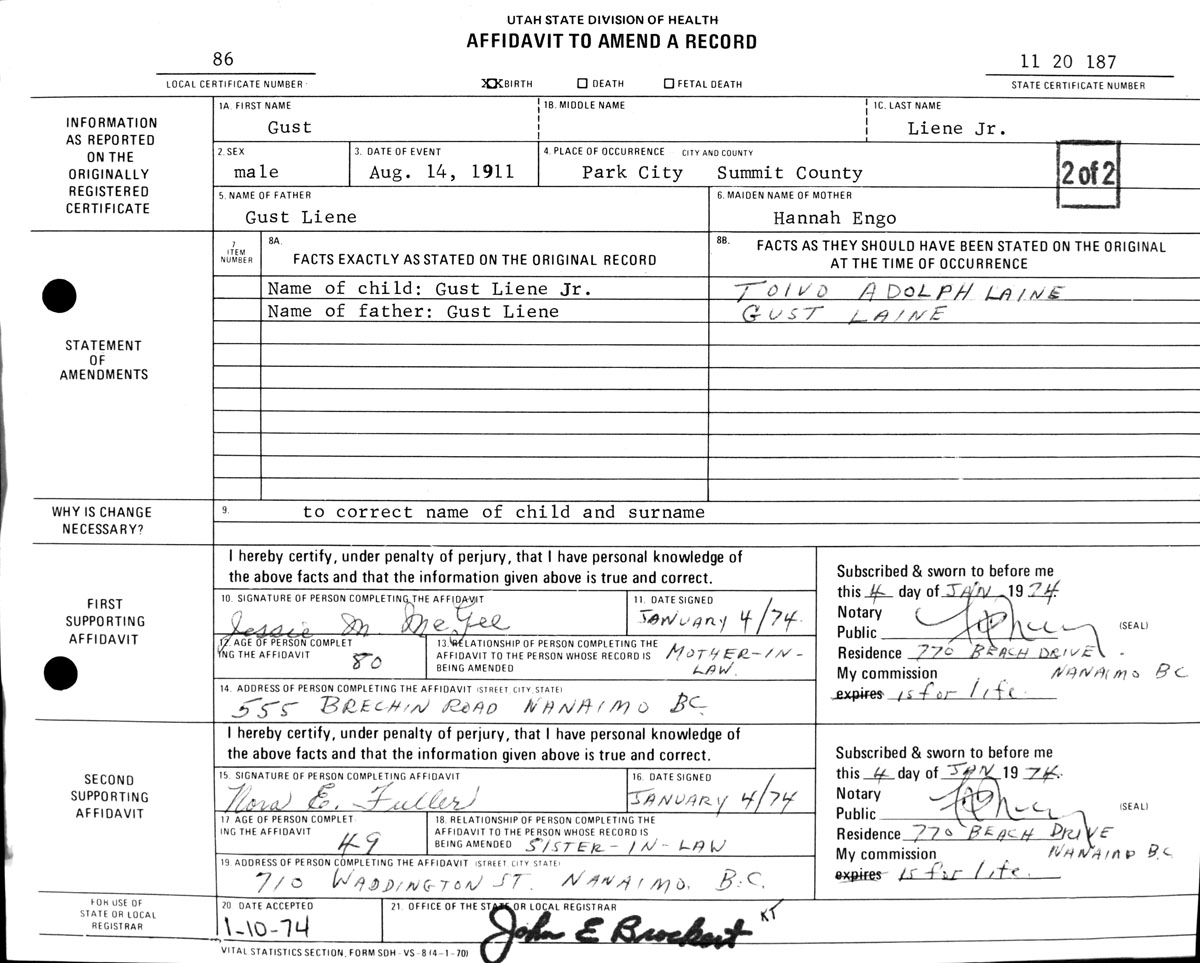 UTAH STATE DIVISION OF HEALTH
AFFIDAVIT TO AMEND A RECORD
86
11 20 187
LOCAL CERTIFICATE NUMBER
XX BIRTH ☐ DEATH ☐ FETAL DEATH
STATE CERTIFICATE NUMBER
INFORMATION AS REPORTED ON THE ORIGINALLY REGISTERED CERTIFICATE
1A. FIRST NAME 1B. MIDDLE NAME 1C. LAST NAME
Gust Liene Jr.
2. SEX 3. DATE OF EVENT 4. PLACE OF OCCURRENCE CITY AND COUNTY
male Aug. 14, 1911 Park City Summit County
2 of 2
5. NAME OF FATHER 6. MAIDEN NAME OF MOTHER
Gust Liene Hannah Engo
STATEMENT OF AMENDMENTS
7 ITEM NUMBER
8A. FACTS EXACTLY AS STATED ON THE ORIGINAL RECORD
8B. FACTS AS THEY SHOULD HAVE BEEN STATED ON THE ORIGINAL
AT THE TIME OF OCCURRENCE
Name of child: Gust Liene Jr. TOIVO ADOLPH LAINE
Name of father: Gust Liene GUST LAINE
WHY IS CHANGE NECESSARY?
9. to correct name of child and surname
FIRST SUPPORTING AFFIDAVIT
I hereby certify, under penalty of perjury, that I have personal knowledge of
the above facts and that the information given above is true and correct.
10. SIGNATURE OF PERSON COMPLETING THE AFFIDAVIT 11. DATE SIGNED
Jessie M. McGee JANUARY 4/74.
12. AGE OF PERSON COMPLETING THE AFFIDAVIT 80
13. RELATIONSHIP OF PERSON COMPLETING THE
AFFIDAVIT TO THE PERSON WHOSE RECORD IS
BEING AMENDED MOTHER-IN-LAW.
14. ADDRESS OF PERSON COMPLETING THE AFFIDAVIT (STREET CITY, STATE)
555 BRECHIN ROAD NANAIMO BC.
Subscribed & sworn to before me
this 4 day of JAN, 1974.
Notary
Public (SEAL)
Residence 770 BEACH DRIVE.
My commission NANAIMO BC
expires is for life.
SECOND SUPPORTING AFFIDAVIT
I hereby certify, under penalty of perjury, that I have personal knowledge of
the above facts and that the information given above is true and correct.
15. SIGNATURE OF PERSON COMPLETING AFFIDAVIT 16. DATE SIGNED
Nora E. Fuller JANUARY 4/74
17. AGE OF PERSON COMPLETING THE AFFIDAVIT 49
18. RELATIONSHIP OF PERSON COMPLETING THE
AFFIDAVIT TO THE PERSON WHOSE RECORD IS
BEING AMENDED SISTER-IN-LAW
19. ADDRESS OF PERSON COMPLETING THE AFFIDAVIT (STREET CITY STATE)
710 WADDINGTON ST. NANAIMO. B.C.
Subscribed & sworn to before me
this 4 day of JAN 1974.
Notary
Public (SEAL)
Residence 770 BEACH DRIVE
My commission NANAIMO B.C.
expires is for life.
FOR USE OF STATE OR LOCAL REGISTRAR
20 DATE ACCEPTED 21. OFFICE OF THE STATE OR LOCAL REGISTRAR
1-10-74 John E Brockert KT
VITAL STATISTICS SECTION, FORM SDH-VS-8 (4-1-70)